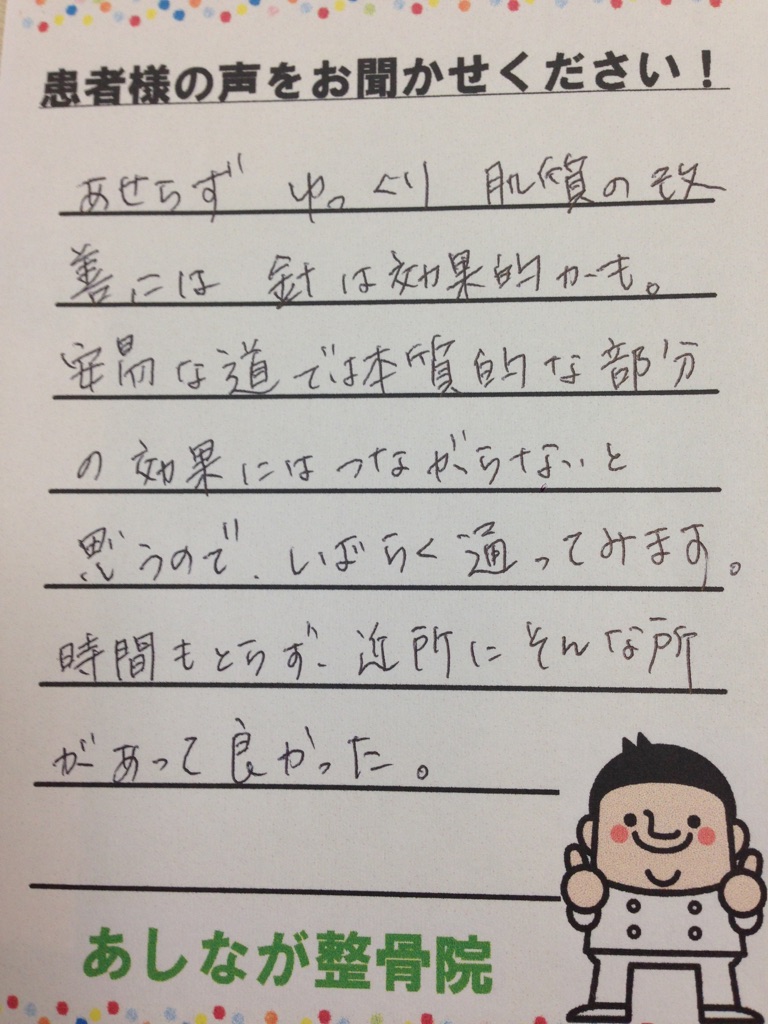 患者様の声をお聞かせください！
あせらず ゆっくり 肌質の改
善には 針は効果的かも。
安易な道では本質的な部分
の効果にはつながらないと
思うので、しばらく通ってみます。
時間もとらず、近所にそんな所
があって良かった。
あしなが整骨院